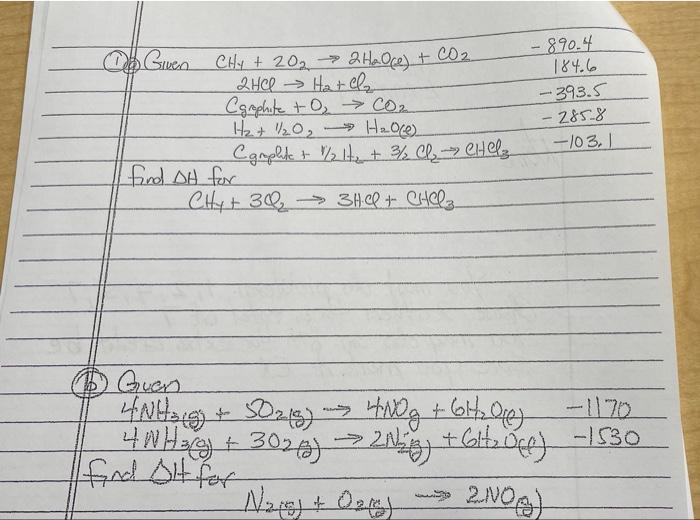 ① a Given CH4 + 2O2 → 2H2O(l) + CO2 - 890.4
2HCl → H2 + Cl2 184.6
Cgraphite + O2 → CO2 -393.5
H2 + 1/2 O2 → H2O(l) - 285.8
Cgraphite + 1/2 H2 + 3/2 Cl2 → CHCl3 -103.1
find ΔH for
CH4 + 3Cl2 → 3HCl + CHCl3
ⓑ Given
4NH3(g) + 5O2(g) → 4NOg + 6H2O(l) -1170
4NH3(g) + 3O2(g) → 2N2(g) + 6H2O(l) -1530
find ΔH for
N2(g) + O2(g) → 2NO(g)